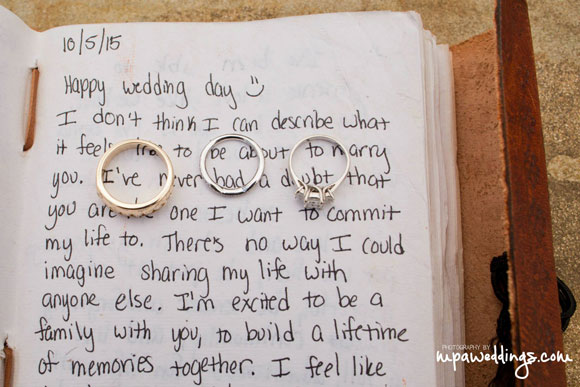 10/5/15
Happy wedding day
I don't think I can describe what
it feels to be about to marry
you. I've never had a doubt that
you are one I want to commit
my life to. There's no way I could
imagine sharing my life with
anyone else. I'm excited to be a
family with you, to build a lifetime
of memories together. I feel like
PHOTOGRAPHY BY
mpaweddings.com